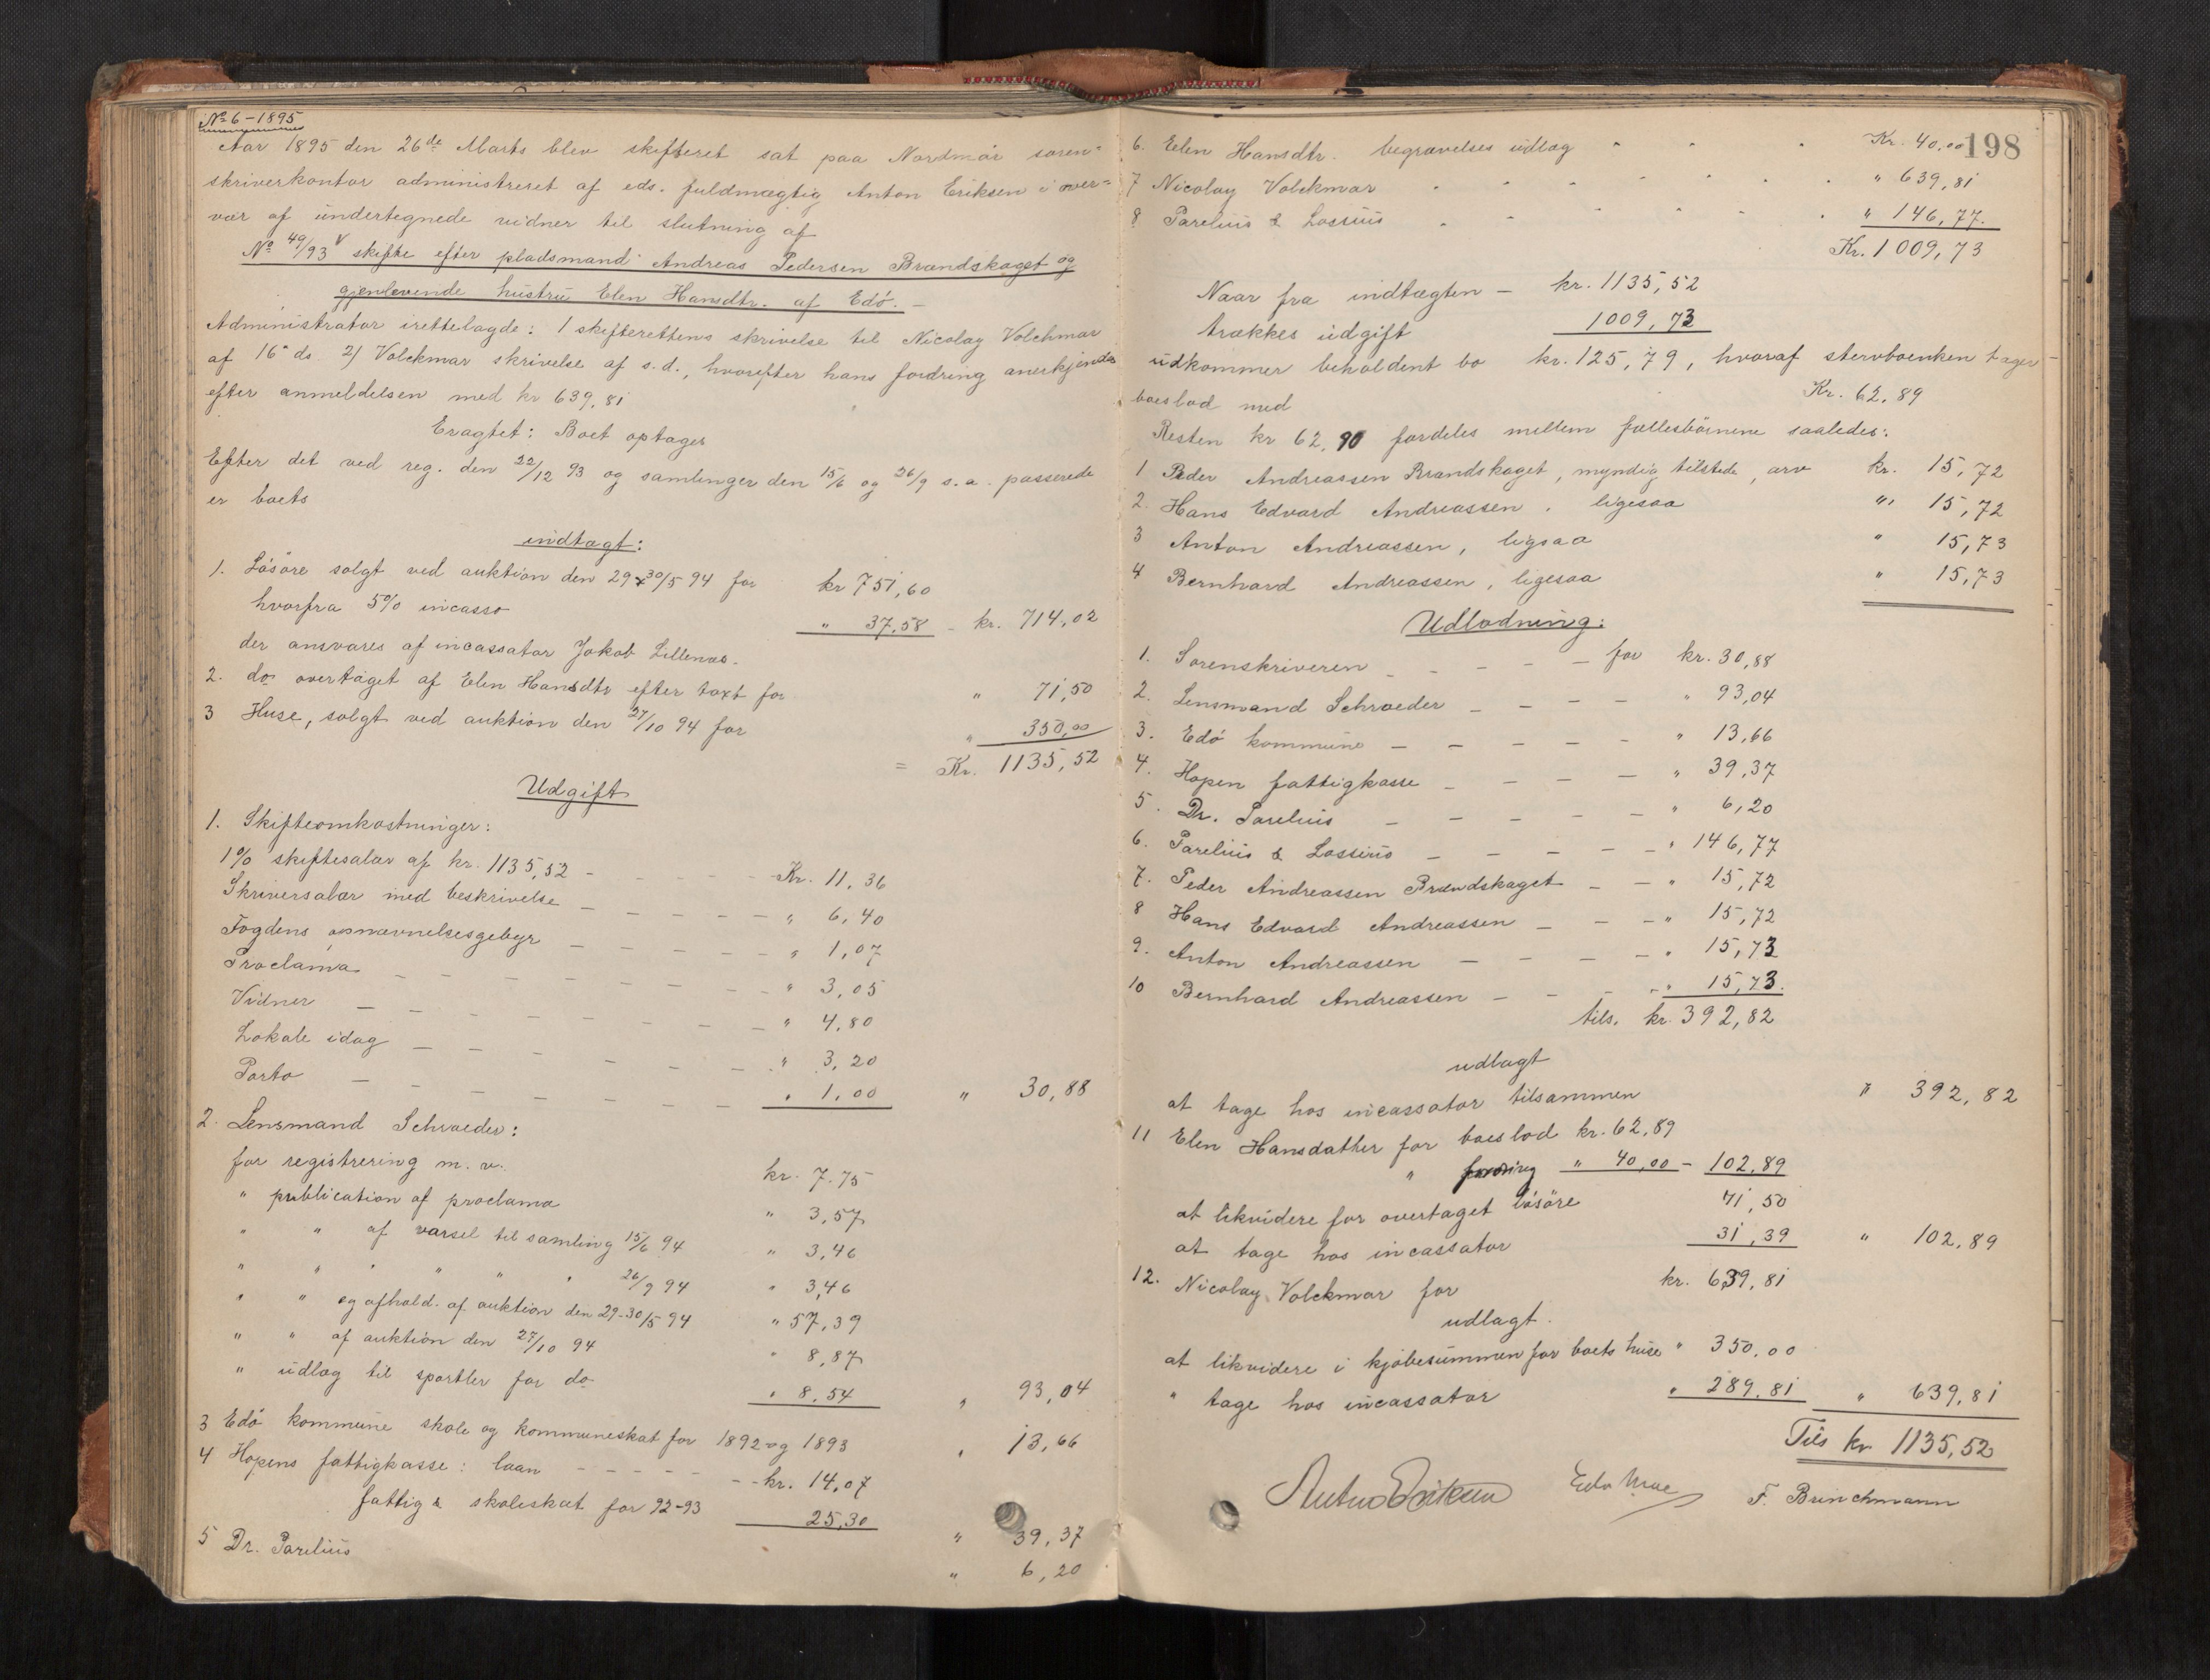 No 6-1895
Aar 1895 den 26de Marts blev skifteret sat paa Nordmør soren=
skriverkontor administreret af eds. fuldmægtig Anton Eriksen i over=
vær af undertegnede vidner til slutning af
No 49/93 skifte efter pladsmand Andreas Pedersen Brandskaget og
gjenlevende hustru Elen Hansdtr. af Edö. —
Administrator irettelagde: 1 skifterettens skrivelse til Nicolay Volchmar
af 16 ds. 2) Volckmar skrivelse af s.d., hvorefter hans fordring anerkjendes
efter anmeldelsen med kr 639,81
Eragtet: Boet optages
Efter det ved reg. den 22/12 93 og samlinger den 15/6 og 26/9 s.a. passerede
er boets
indtægt:
1. Lösöre solgt ved auktion den 29 & 30/5 94 for kr 751,60
hvorfra 5% incasso " 37,58 - kr. 714,02
der ansvares af incassator Jakob Lillenæs.
2. do overtaget af Elen Hansdtr efter taxt for " 71,50
3 Huse, solgt ved auktion den 27/10 94 for " 350,00
= Kr. 1135,52
Udgift
1. Skifteomkostninger:
1% skiftesalær af kr. 1135,52 - Kr. 11,36
Skriversalær med beskrivelse — " 6,40
Fogdens opnævnelsesgebyr — " 1,07
Proclama — " 3,05
Vidner — " 4,80
Lokale idag — " 3,20
Porto — " 1,00 " 30,88
2. Lensmand Schroeder:
for registrering m.v. kr. 7.75
" publication af proclama " 3,57
" " af varsel til samling 15/6 94 " 3,46
" " " " " " 26/9 94 " 3,46
" " og afhold. af auktion den 29-30/5 94 " 57,39
" " af auktion den 27/10 94 " 8,87
" udlæg til sportler for do " 8,54 " 93,04
3 Edö kommune skole og kommuneskat for 1892 og 1893 " 13,66
4 Hopens fattigkasse: laan - kr. 14,07
fattig & skoleskat for 92-93 25,30 " 39,37
5 Dr. Parelius " 6,20
198
6. Elen Hansdtr. begravelses udlæg " Kr. 40,00
7 Nicolay Volckmar " 639,81
8 Parelius & Lossius " 146,77.
Kr. 1009,73
Naar fra indtægten — kr. 1135,52
trækkes udgift 1009,73
udkommer beholdent bo kr. 125,79, hvoraf stervboenken tager
boeslod med Kr. 62,89
Resten kr 62,90 fordeles mellem fællesbörnene saaledes:
1 Peder Andreassen Brandskaget, myndig tilstede, arv kr. 15,72
2. Hans Edvard Andreassen, ligesaa " 15,72
3 Anton Andreassen, ligsaa " 15,73
4 Bernhard Andreassen, ligesaa " 15,73
Udlodning:
1. Sorenskriveren — for kr. 30,88
2. Lensmand Schroeder — " 93,04
3. Edö kommune — " 13,66
4. Hopen fattigkasse — " 39,37
5. Dr. Parelius — " 6,20
6. Parelius & Lossius — " 146,77
7. Peder Andreassen Brandskaget — " 15,72
8 Hans Edvard Andreassen — " 15,72
9. Anton Andreassen — " 15,73
10 Bernhard Andreassen — " 15,73.
tils. kr. 392,82
udlagt
at tage hos incassator tilsammen " 392,82
11 Elen Hansdatter for boeslod kr. 62,89
" fordring " 40,00 - 102,89
at likvidere for overtaget lösöre 71,50
at tage hos incassator 31,39 " 102,89
12. Nicolay Volckmar for kr. 639,81
udlagt.
at likvidere i kjöbesummen for boets huse " 350,00
" tage hos incassator " 289,81 " 639,81
Tils kr 1135,52
Anton Eriksen Edv Moe F. Brinchmann